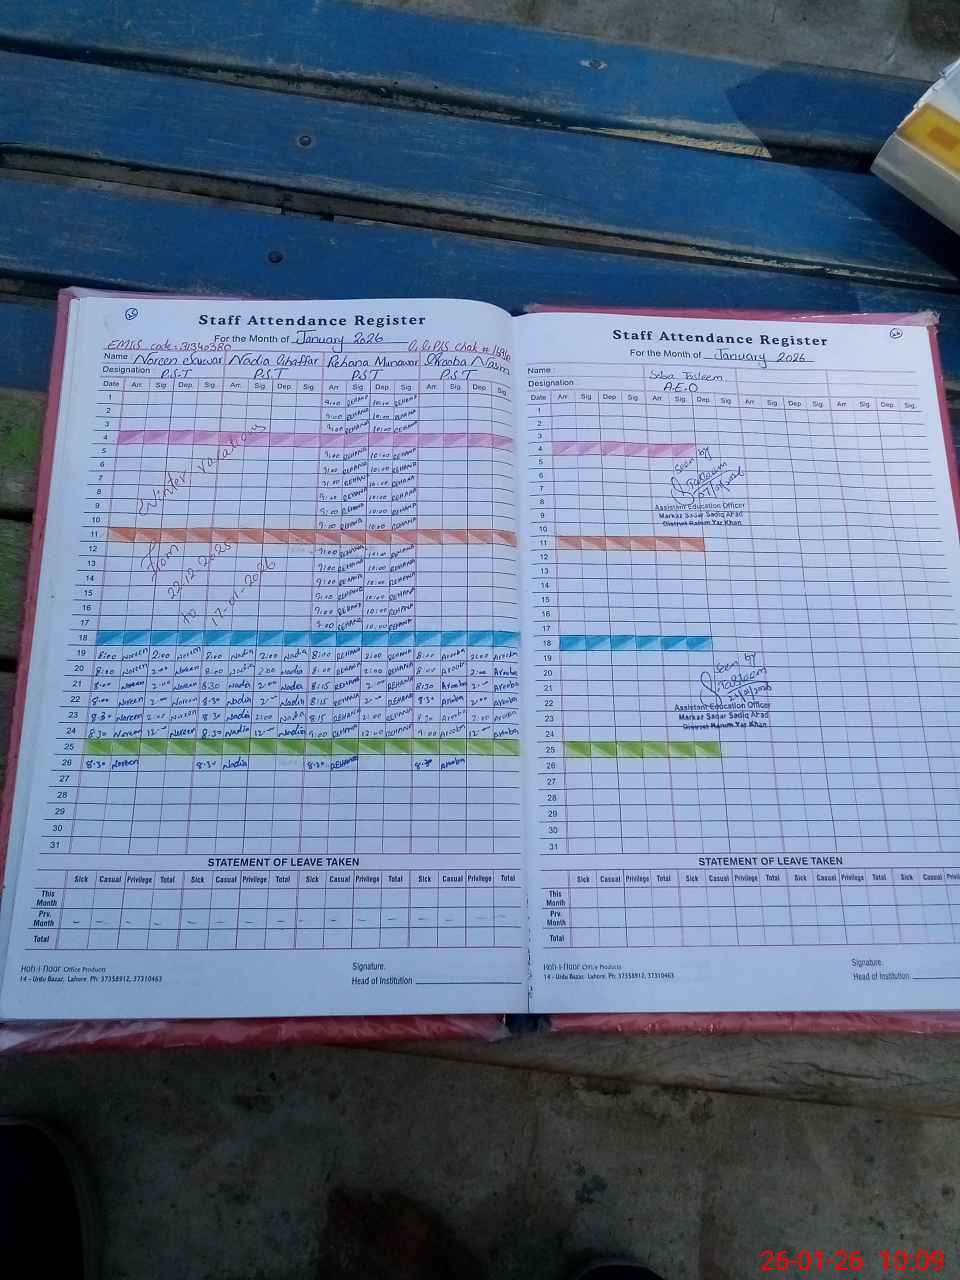 26
Staff Attendance Register
For the Month of January 2026
EMIS code: 31340380
Name : Noreen Nadia Ghaffar Rehana Munawar Arooba
Designation : P.S.T P.S.T P.S.T P.S.T
Date Arr. Sig. Dep. Sig. Arr. Sig. Dep. Sig. Arr. Sig. Dep. Sig. Arr. Sig. Dep. Sig.
1 9:00 REHANA 10:00 REHANA
2 9:00 REHANA 10:00 REHANA
3 9:00 REHANA 10:00 REHANA
4
5 9:00 REHANA 10:00 REHANA
6 9:00 REHANA 10:00 REHANA
7 9:00 REHANA 10:00 REHANA
8 9:00 REHANA 10:00 REHANA
9 9:00 REHANA 10:00 REHANA
10 9:00 REHANA 10:00 REHANA
11
12 9:00 REHANA 10:00 REHANA
13 9:00 REHANA 10:00 REHANA
14 9:00 REHANA 10:00 REHANA
15 9:00 REHANA 10:00 REHANA
16 9:00 REHANA 10:00 REHANA
17 9:00 REHANA 10:00 REHANA
Winter vacations
from
22.12.2025
to
17-01-2026
18
19 8:00 Noreen 2:00 Noreen 8:00 Nadia 2:00 Nadia 8:00 REHANA 2:00 REHANA 8:00 Arooba 2:00 Arooba
20 8:00 Noreen 2:00 Noreen 8:00 Nadia 2:00 Nadia 8:00 REHANA 2:00 REHANA 8:00 Arooba 2:00 Arooba
21 8:00 Noreen 2:00 Noreen 8:30 Nadia 2:00 Nadia 8:15 REHANA 2:00 REHANA 8:30 Arooba 2:00 Arooba
22 8:00 Noreen 2:00 Noreen 8:30 Nadia 2:00 Nadia 8:15 REHANA 2:00 REHANA 8:30 Arooba 2:00 Arooba
23 8:30 Noreen 2:00 Noreen 8:30 Nadia 2:00 Nadia 8:15 REHANA 2:00 REHANA 8:30 Arooba 2:00 Arooba
24 8:30 Noreen 12:00 Noreen 8:30 Nadia 12:00 Nadia 9:00 REHANA 12:00 REHANA 9:00 Arooba 12:00 Arooba
25
26 8:30 Noreen 8:30 Nadia 8:30 REHANA 8:30 Arooba
27
28
29
30
31
STATEMENT OF LEAVE TAKEN
Sick Casual Privilege Total Sick Casual Privilege Total Sick Casual Privilege Total Sick Casual Privilege Total
This Month
Prv. Month – – – – – – – – – – – –
Total
Koh-i-Noor Office Products
14 - Urdu Bazar, Lahore. Ph: 37358912, 37310463
Signature.
Head of Institution
26
Staff Attendance Register
For the Month of January 2026
Name :
Saba Tasleem
Designation :
A.E.O
Date Arr. Sig. Dep. Sig. Arr. Sig. Dep. Sig. Arr. Sig. Dep. Sig. Arr. Sig. Dep. Sig.
1
2
3
4
5
6
7
8
9
10
11
12
13
14
15
16
17
18
19
20
21
22
23
24
25
26
27
28
29
30
31
Seen by
Tasleem
Assistant Education Officer
Markaz Sadar Sadiq Abad
District Rahim Yar Khan
Seen by
Tasleem
Assistant Education Officer
Markaz Sadar Sadiq Abad
District Rahim Yar Khan
STATEMENT OF LEAVE TAKEN
Sick Casual Privilege Total Sick Casual Privilege Total Sick Casual Privilege Total Sick Casual
This Month
Prv. Month
Total
Koh-i-Noor Office Products
14 - Urdu Bazar, Lahore. Ph: 37358912, 37310463
Signature.
Head of Institution
26-01-26 10:09